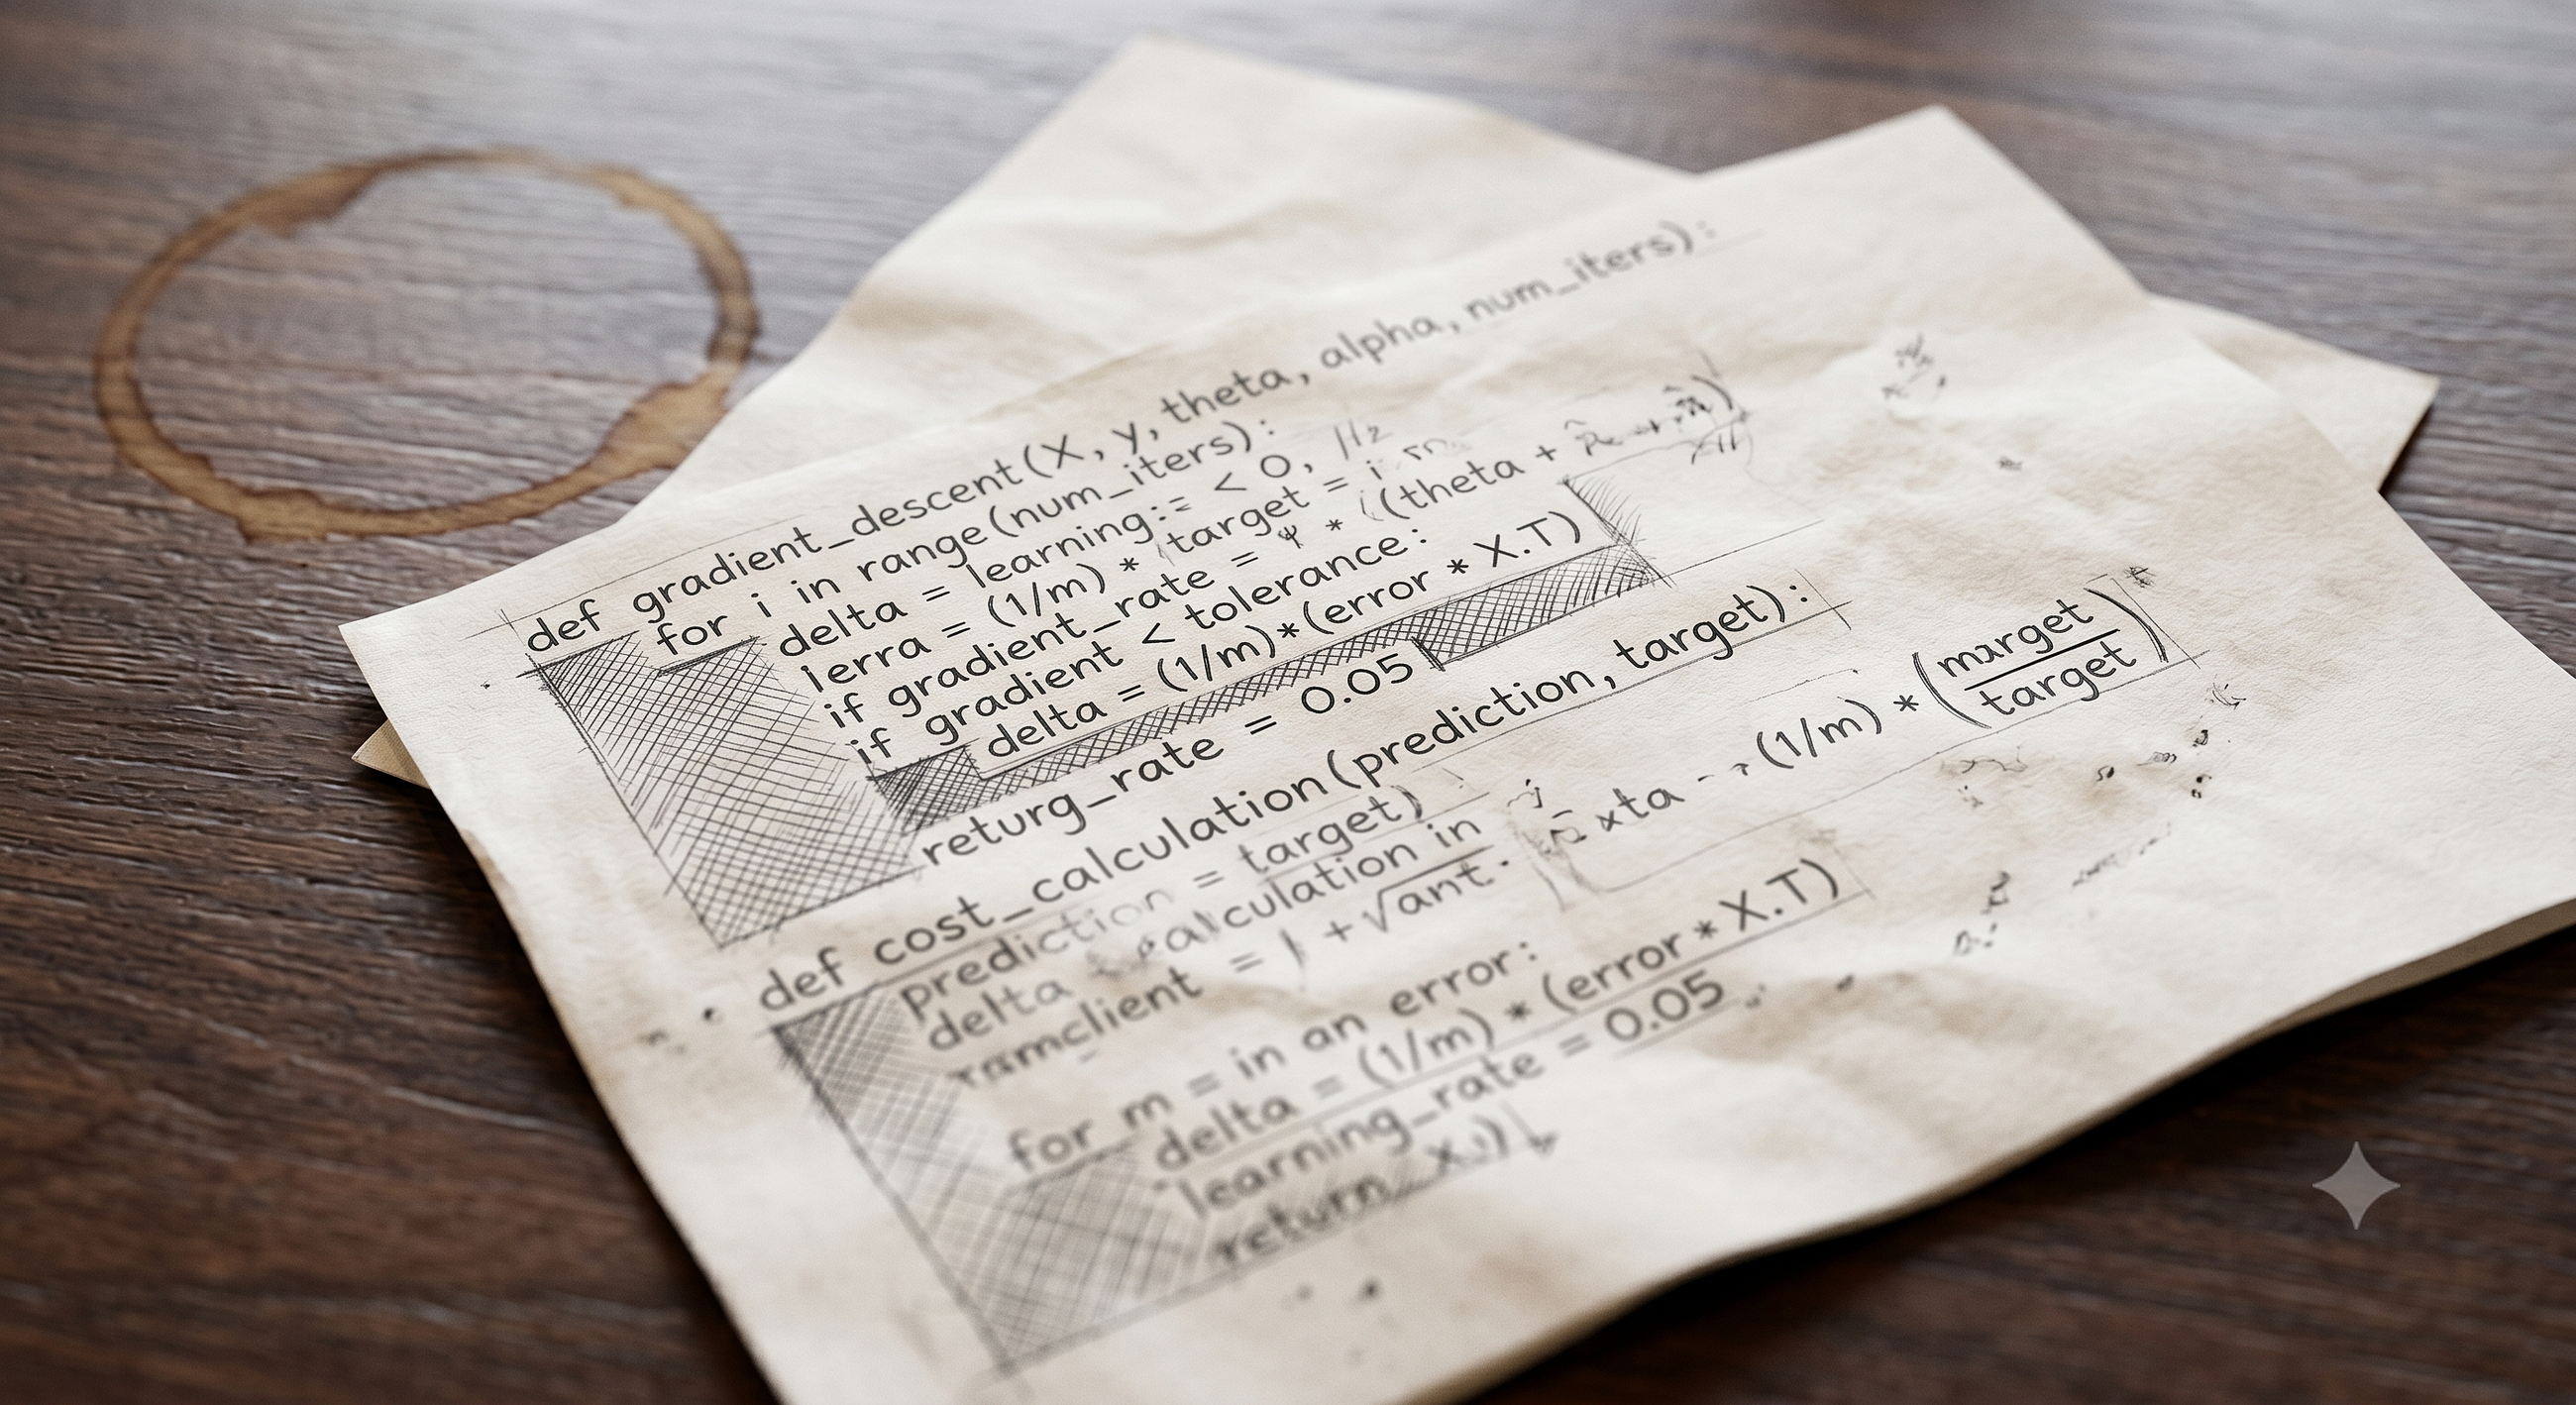 def gradient_descent(X, y, theta, alpha, num_iters):
for i in range(num_iters):
delta = learning:= < 0,
ierra = (1/m) * target = i
if gradient_rate = ψ * (theta +
if gradient < tolerance:
delta = (1/m)*(error * X.T)
returg_rate = 0.05
def cost_calculation(prediction, target):
prediction = target)
delta calculation in xta (1/m) * (marget
target)
ramclient = + √ant.
for m = in an error:
delta = (1/m) * (error * X.T)
learning_rate = 0.05
return